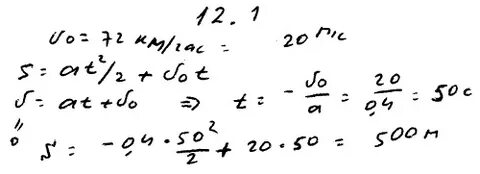 12.1
v₀ = 72 км/час = 20 м/с
S = at²/2 + v₀t
v = at + v₀ ⇒ t = - v₀/a = 20/0,4 = 50 с
"
0
S = -0,4 · 50²/2 + 20 · 50 = 500 м